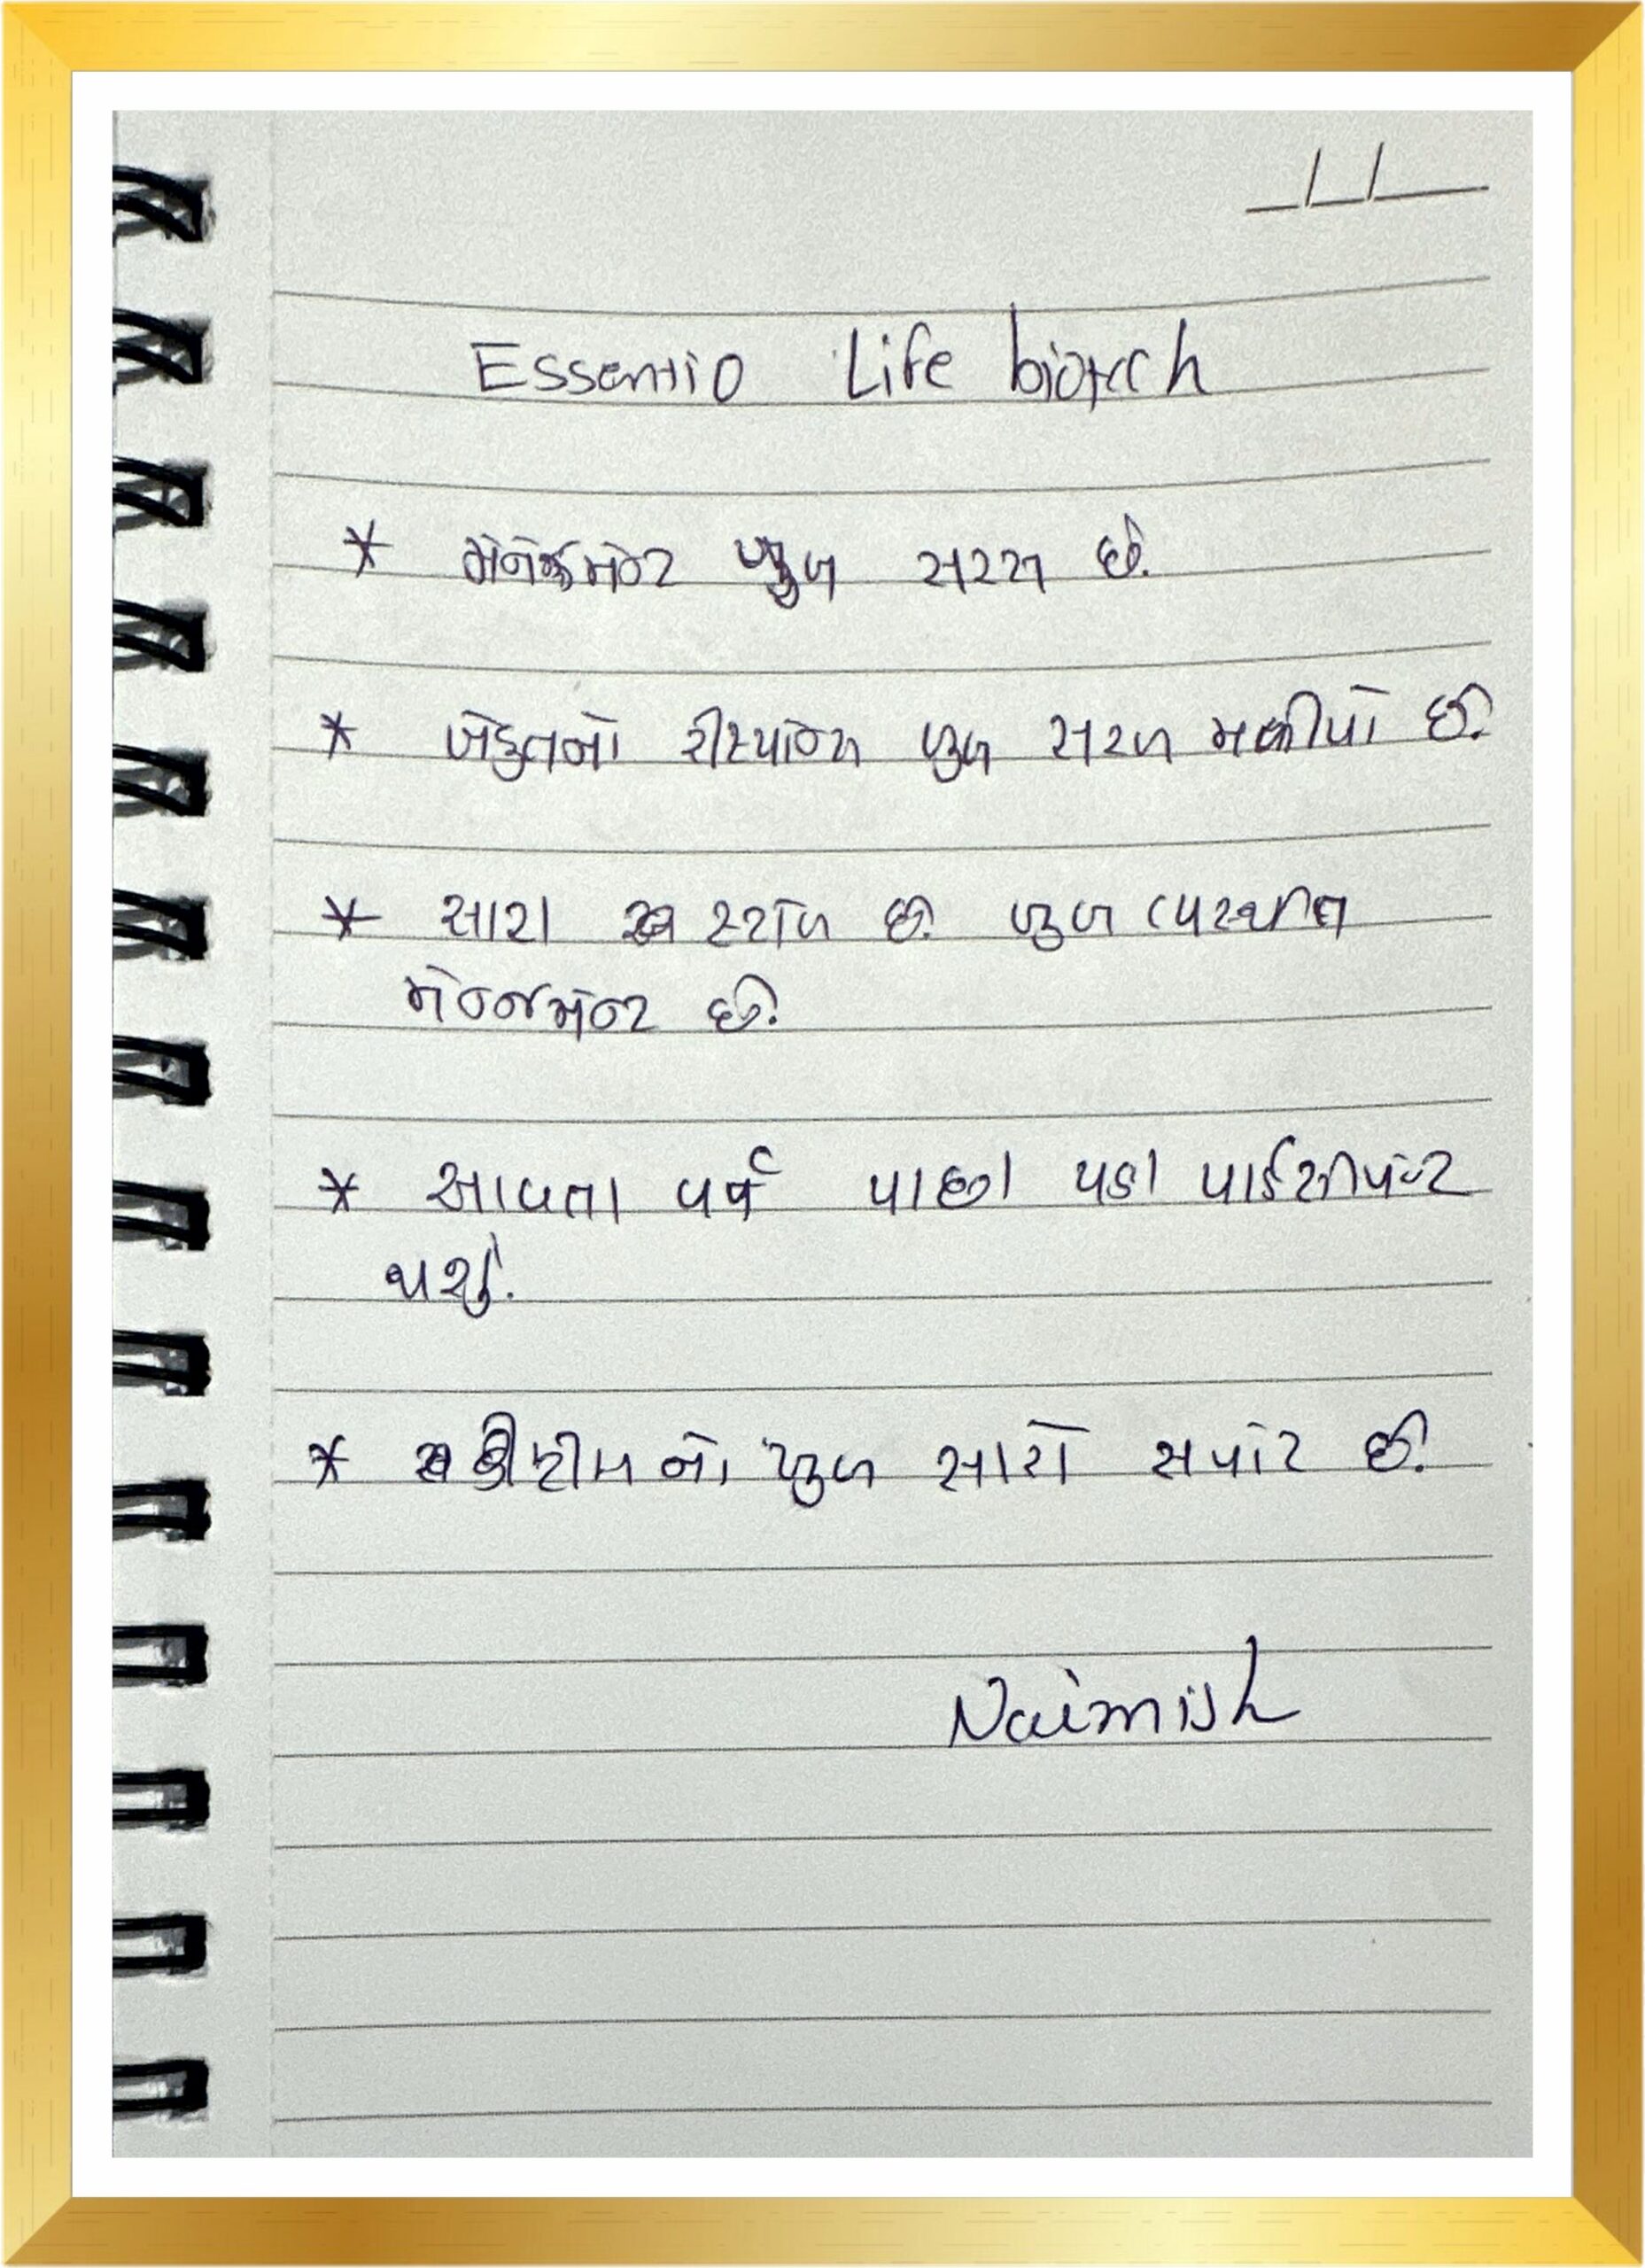 Essentio Life biotech
* મેનેજમેન્ટ ખુબ સરસ છે.
* ખેડુતનો રીસ્પોન્સ ખુબ સરળ મળીયો છે.
* સારા સ્ટોલ છે. ખુબ વ્યસ્થીત
મેન્જમેન્ટ છે.
* આવતા વર્ષ પાછા પણ પાર્ટીસીપેન્ટ
થશું.
* નો ખુબ સારો સપોટ છે.
Naimish